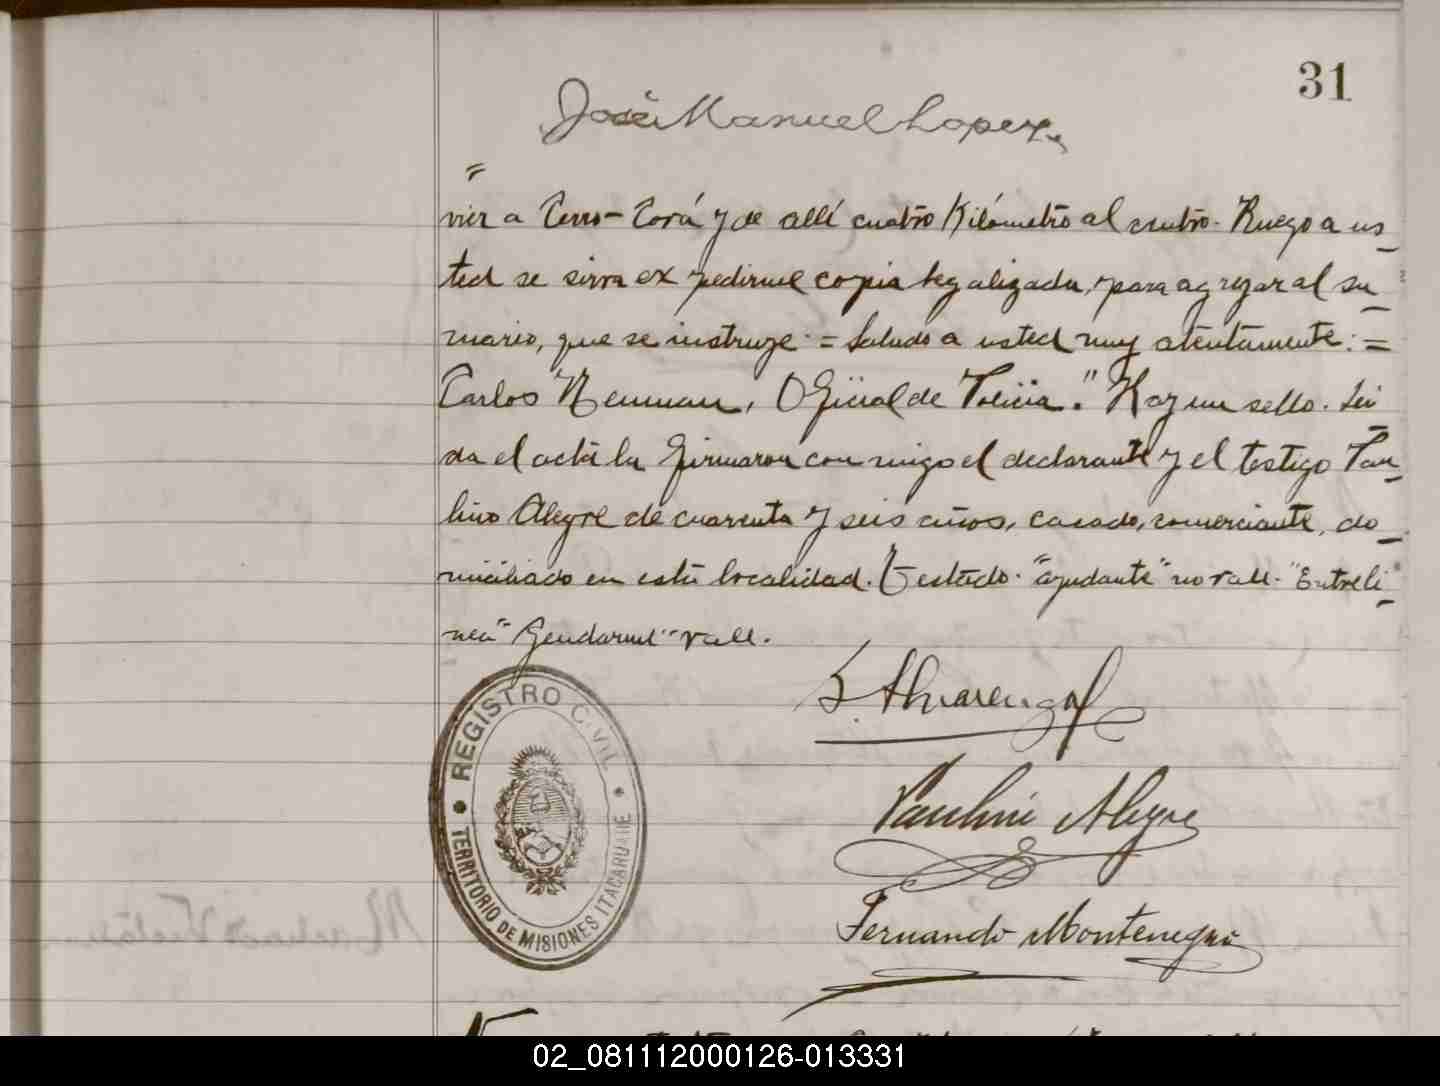 31
José Manuel Lopez.
"
vier a Cerro-Corá y de allí cuatro Kilómetro al centro. Ruego a us_
ted se sirva ex pedirme copia legalizada, para agregar al su_
mario, que se instruye = Saludo a usted muy atentamente. =
Carlos Neuman, Oficial de Policia." Hay un sello. Lei
da el acta la firmaron con migo el declarante y el testigo Pau_
lino Alegre de cuarenta y seis años, casado, comerciante, do_
miciliado en esta localidad. Testado. "ayudante" no vale. "Entreli_
nea" Gendarme" vale.
S. Alvarenga
Paulino Alegre
Fernando Montenegro
REGISTRO CIVIL
TERRITORIO DE MISIONES ITACARUARE
02_081112000126-013331